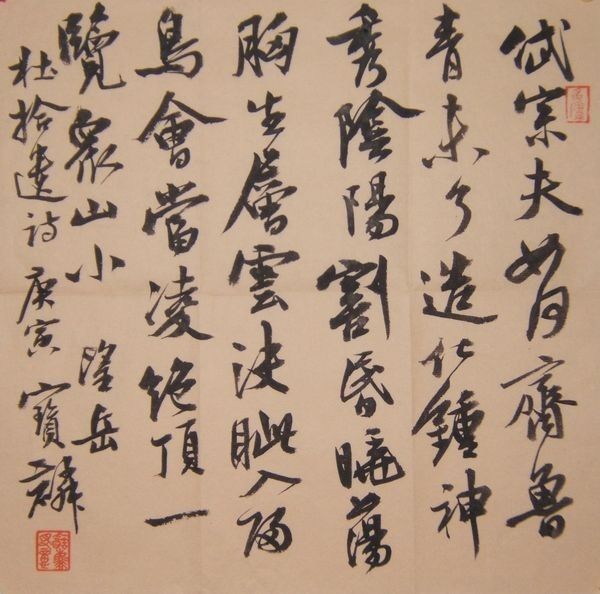 岱宗夫如何齊魯
青未了造化鍾神
秀陰陽割昏曉蕩
胸生層雲決眦入歸
鳥會當凌絕頂一
覽眾山小 望岳
杜拾遺诗 庚寅 寶麟